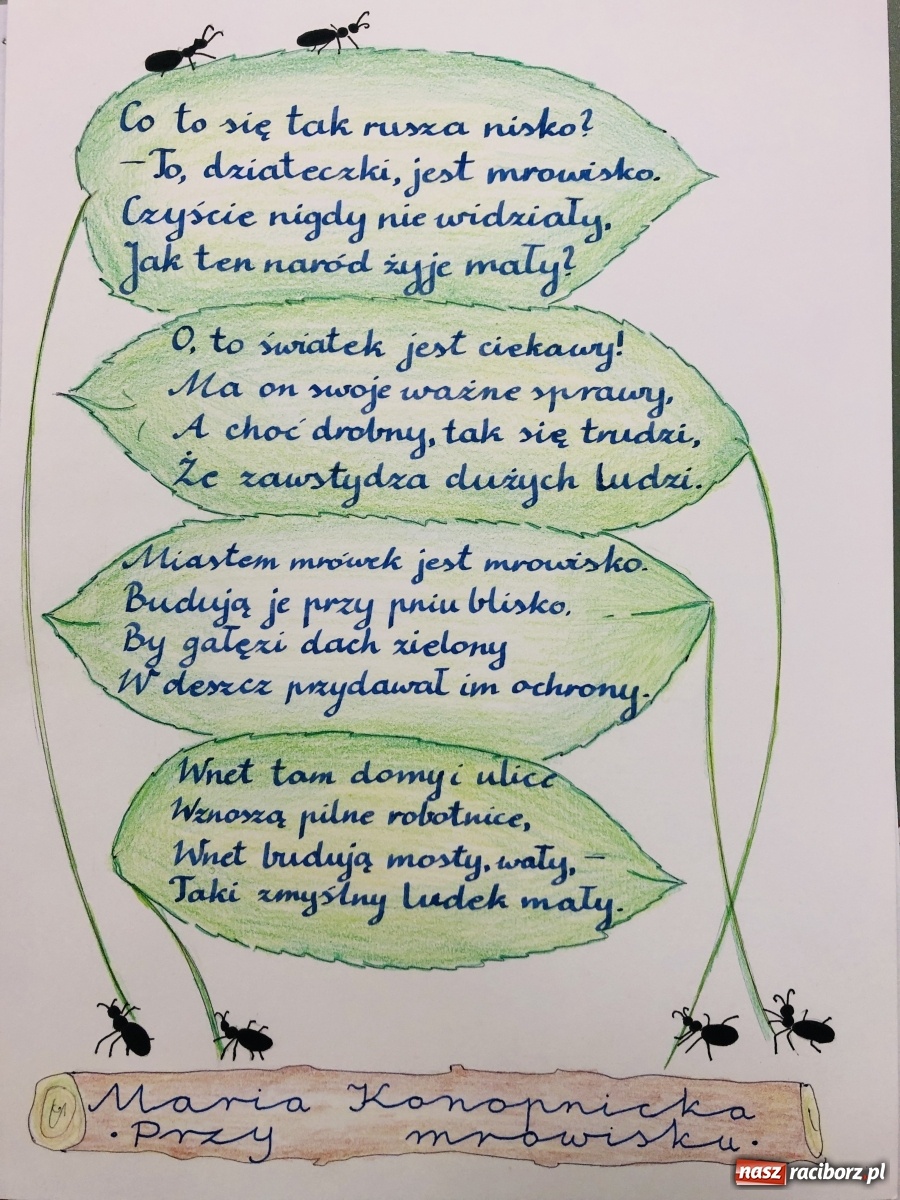 Co to się tak rusza nisko?
– To, dziateczki, jest mrowisko.
Czyście nigdy nie widziały,
Jak ten naród żyje mały?
O, to światek jest ciekawy!
Ma on swoje ważne sprawy,
A choć drobny, tak się trudzi,
Że zawstydza dużych ludzi.
Miastem mrówek jest mrowisko.
Budują je przy pniu blisko,
By gałęzi dach zielony
W deszcz przydawał im ochrony.
Wnet tam domy i ulice
Wznoszą pilne robotnice,
Wnet budują mosty, wały, –
Taki zmyślny ludek mały.
Maria Konopnicka
·Przy mrowisku·
nasz raciborz.pl